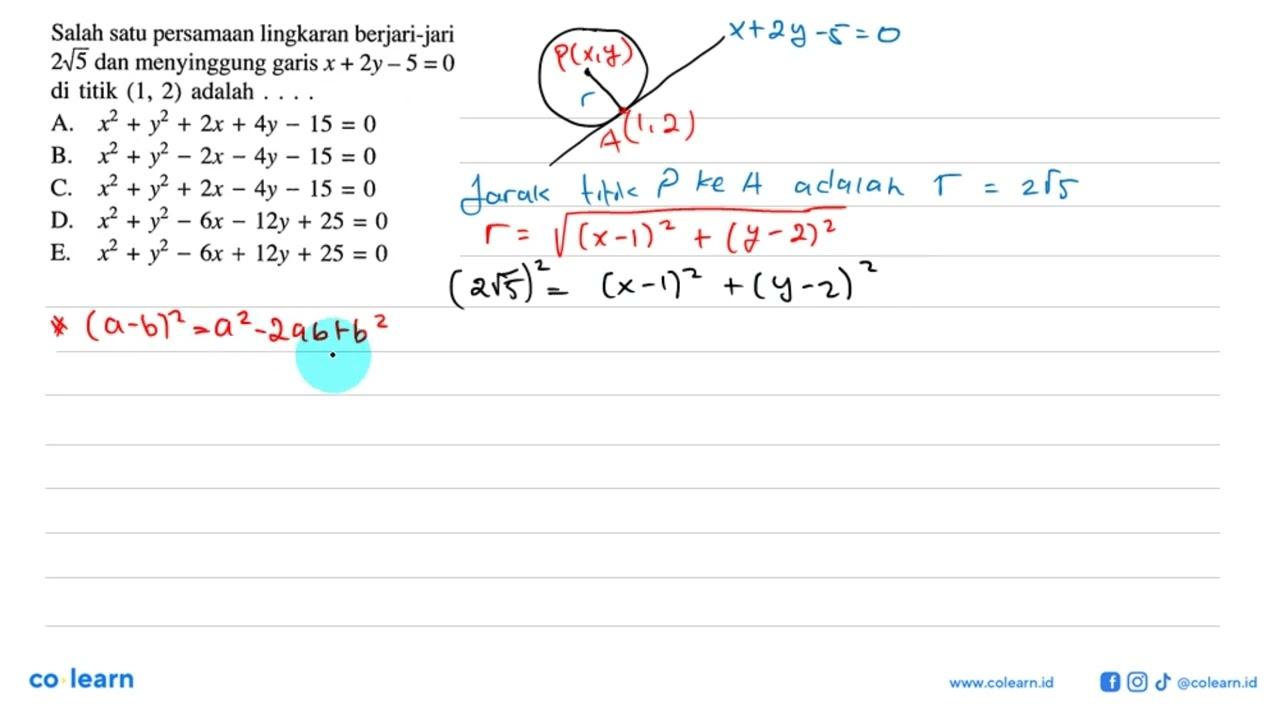 Salah satu persamaan lingkaran berjari-jari
2√5 dan menyinggung garis x + 2y – 5 = 0
di titik (1, 2) adalah . . . .
A. x² + y² + 2x + 4y − 15 = 0
B. x² + y² − 2x − 4y − 15 = 0
C. x² + y² + 2x − 4y − 15 = 0
D. x² + y² − 6x − 12y + 25 = 0
E. x² + y² − 6x + 12y + 25 = 0
x+2y-5=0
P(x,y)
r
A(1,2)
Jarak titik P ke A adalah r = 2√5
r = √(x-1)² + (y-2)²
(2√5)² = (x-1)² + (y-2)²
* (a-b)² = a² - 2ab + b²
co learn
www.colearn.id
@colearn.id